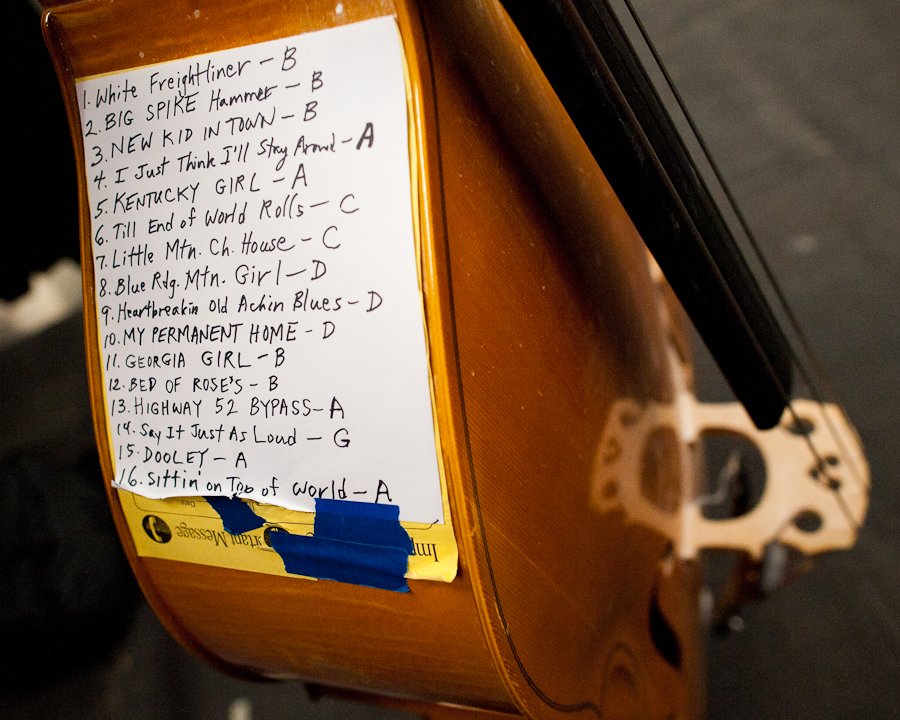 1. White Freightliner - B
2. BIG SPIKE Hammer - B
3. NEW KID IN TOWN - B
4. I Just Think I'll Stay Around - A
5. KENTUCKY GIRL - A
6. Till End of World Rolls - C
7. Little Mtn. Ch. House - C
8. Blue Rdg. Mtn. Girl - D
9. Heartbreakin Old Achin Blues - D
10. MY PERMANENT HOME - D
11. GEORGIA GIRL - B
12. BED OF ROSE'S - B
13. HIGHWAY 52 BYPASS - A
14. Say It Just As Loud - G
15. DOOLEY - A
16. Sittin' on Top of World - A
Imp rtant Message